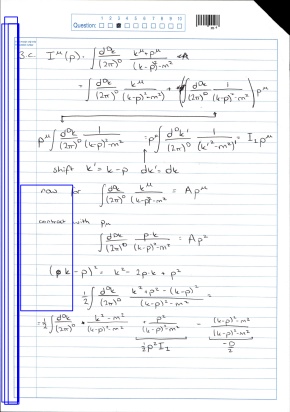 Question: 1 2 3 4 5 6 7 8 9 10
3.c I^μ(p) = ∫ d^Dk/(2π)^D (k^μ + p^μ)/((k-p)²-m²)
= ∫ d^Dk/(2π)^D k^μ/((k-p)²-m²) + (∫ d^Dk/(2π)^D 1/((k-p)²-m²)) p^μ
p^μ ∫ d^Dk/(2π)^D 1/((k-p)²-m²) = p^μ ∫ d^Dk'/(2π)^D 1/(k'²-m²) = I₁ p^μ
shift k' = k-p dk' = dk
now for ∫ d^Dk/(2π)^D k^μ/((k-p)²-m²) = A p^μ
contract with p_μ
∫ d^Dk/(2π)^D p·k/((k-p)²-m²) = A p²
(k-p)² = k² - 2p·k + p²
1/2 ∫ d^Dk/(2π)^D (k² + p² - (k-p)²)/((k-p)²-m²) =
= 1/2 ∫ d^Dk/(2π)^D (k²-m²)/((k-p)²-m²) + p²/((k-p)²-m²) - ((k-p)²-m²)/((k-p)²-m²)
½p² I₁